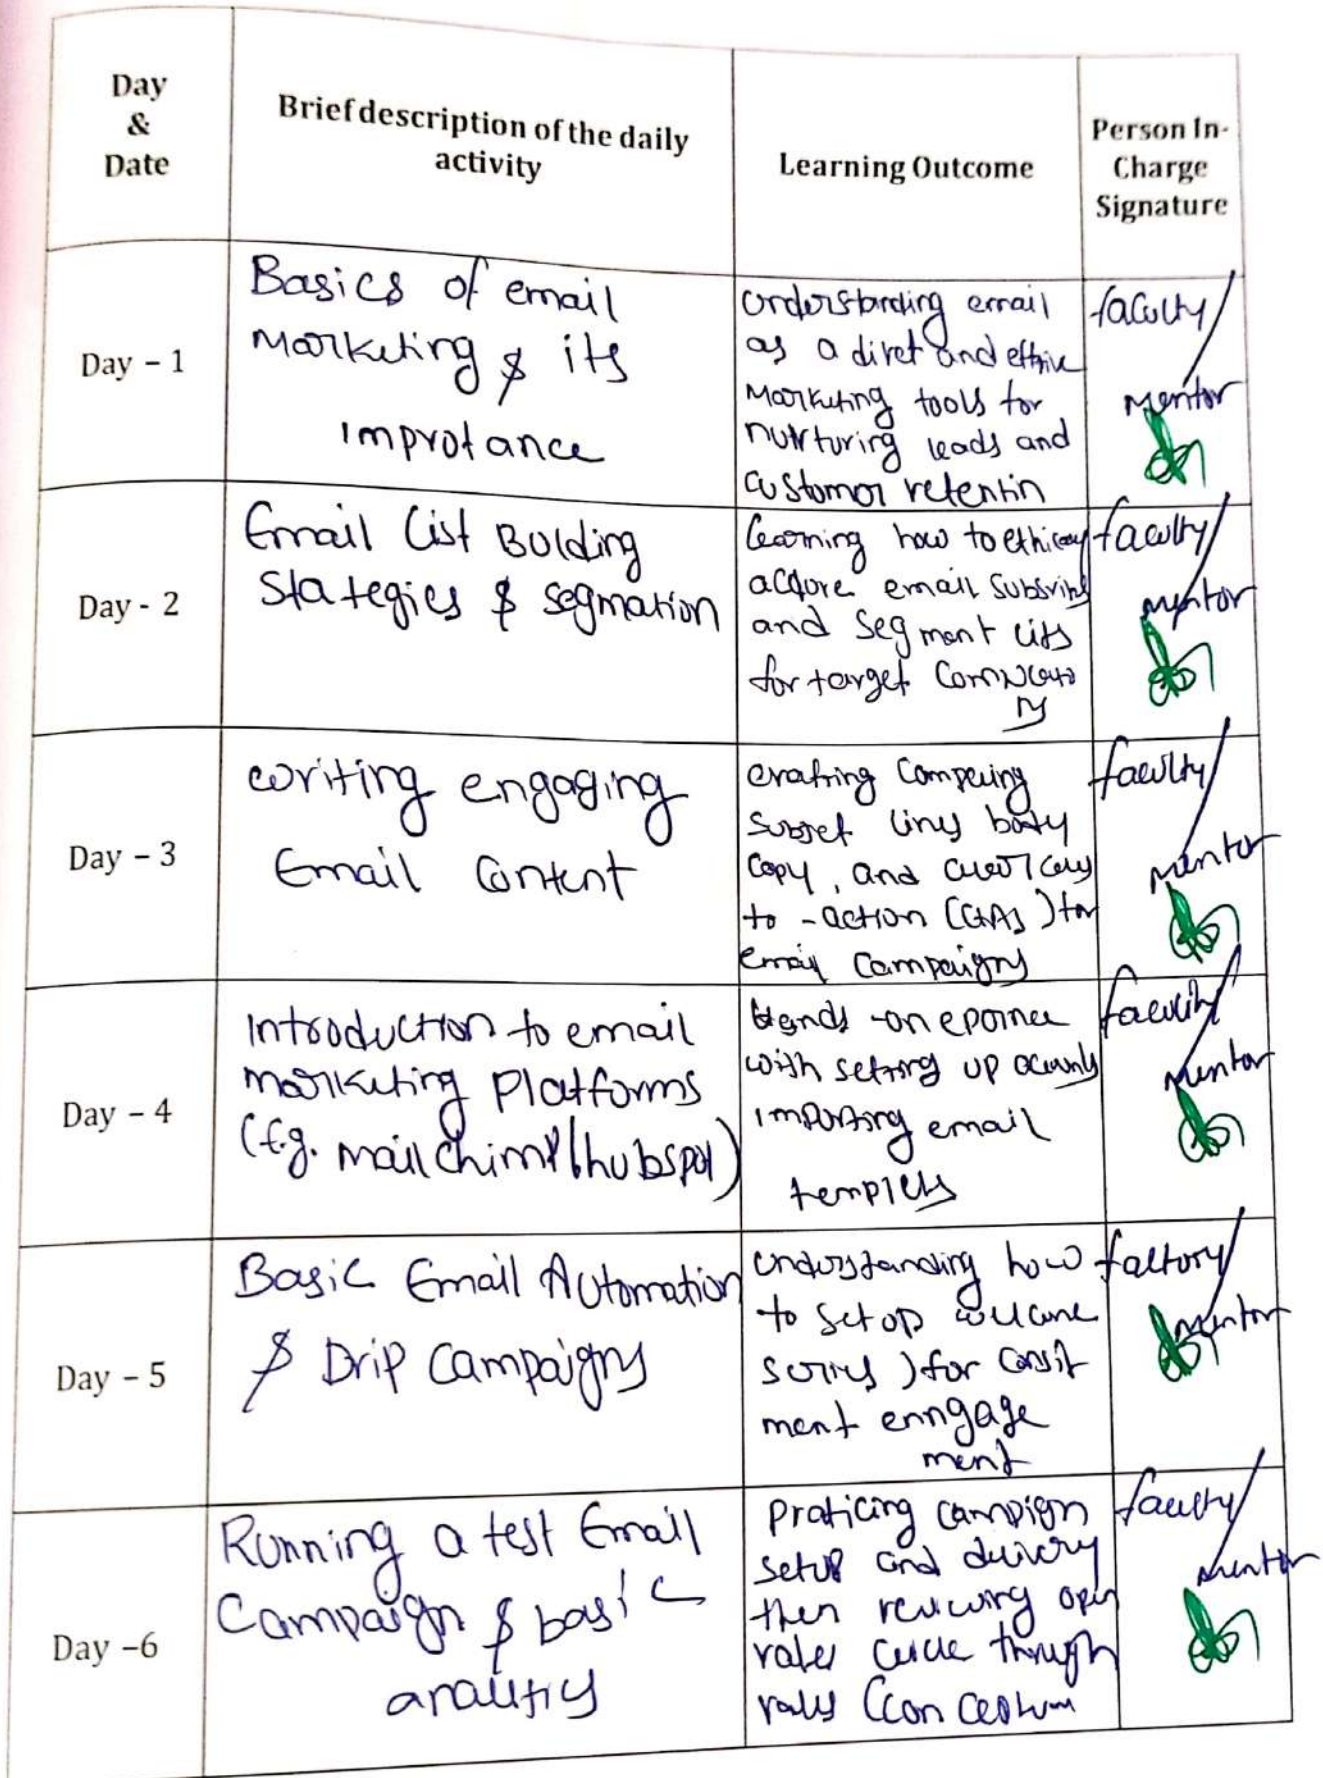 Day
&
Date
Brief description of the daily
activity
Learning Outcome
Person In-
Charge
Signature
Day – 1
Basics of email
Marketing & its
improtance
Understanding email
as a diret and effive
Marketing tools for
nurturing leads and
customer retentin
faculty/
Mentor
Day - 2
Email List Bulding
Stategies & segmation
learning how to
acqore email
and segment lits
for target
faculty/
mentor
Day – 3
writing engaging
Email Content
crafting
lines body
copy, and
to - action (CTAs) for
email Campaigns
faculty/
mentor
Day – 4
Introduction to email
marketing Platforms
(E.g. mailchimp/hubspot)
Hands -on
with setting up
importing email
templets
faculty/
mentor
Day – 5
Basic Email Automation
& Drip Campaigns
understanding how
to set up
series ) for
ment enngage
ment
factory/
mentor
Day –6
Running a test Email
Campaign & basic
analitics
Praticing campign
setup and delivery
then reviewing open
rates through
rates
faculty/
mentor